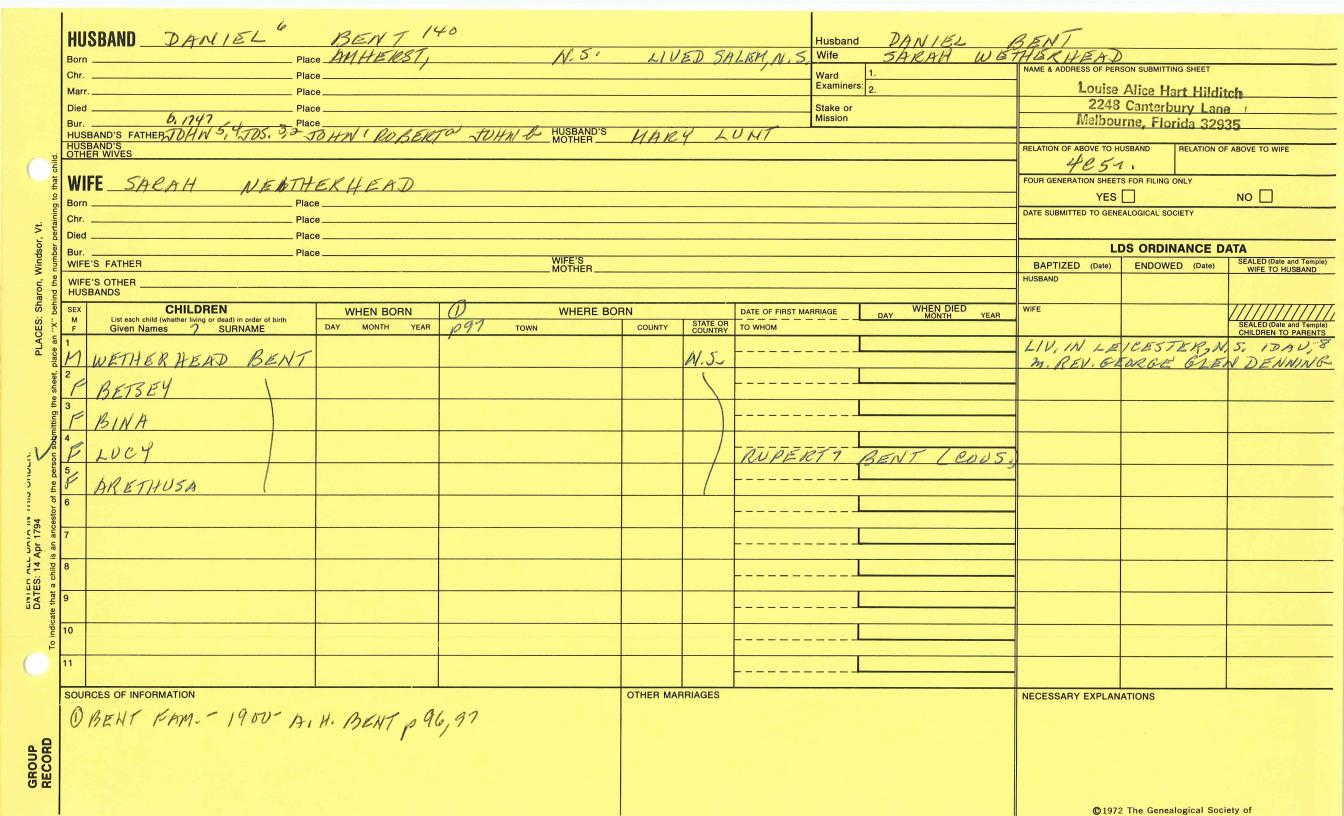 HUSBAND DANIEL 6 BENT 140
Born Place AMHERST, N.S. LIVED SALEM, N.S.
Chr. Place
Marr. Place
Died Place
Bur. b. 1747 Place
HUSBAND'S FATHER JOHN 5, 4 JOS. 3, 2 JOHN 1 ROBERT a JOHN b HUSBAND'S MOTHER MARY LUNT
HUSBAND'S OTHER WIVES
Husband DANIEL BENT
Wife SARAH WETHERHEAD
Ward Examiners: 1.
2.
Stake or Mission
NAME & ADDRESS OF PERSON SUBMITTING SHEET
Louise Alice Hart Hilditch
2248 Canterbury Lane
Melbourne, Florida 32935
RELATION OF ABOVE TO HUSBAND RELATION OF ABOVE TO WIFE
4C5r.
FOUR GENERATION SHEETS FOR FILING ONLY
YES NO
DATE SUBMITTED TO GENEALOGICAL SOCIETY
WIFE SARAH NEATHERHEAD
Born Place
Chr. Place
Died Place
Bur. Place
WIFE'S FATHER WIFE'S MOTHER
WIFE'S OTHER HUSBANDS
LDS ORDINANCE DATA
BAPTIZED (Date) ENDOWED (Date) SEALED (Date and Temple) WIFE TO HUSBAND
HUSBAND
WIFE
SEALED (Date and Temple) CHILDREN TO PARENTS
SEX M F
CHILDREN
List each child (whether living or dead) in order of birth
Given Names 7 SURNAME
WHEN BORN
DAY MONTH YEAR
① p97
WHERE BORN
TOWN COUNTY STATE OR COUNTRY
DATE OF FIRST MARRIAGE
TO WHOM
WHEN DIED
DAY MONTH YEAR
1 M WETHERHEAD BENT N.S. LIV. IN LEICESTER, N.S. 1DAU, 8
m. REV. GEORGE GLEN DENNING
2 F BETSEY
3 F BINA
4 F LUCY RUPERT 7 BENT (COUS,
5 F ARETHUSA
6
7
8
9
10
11
SOURCES OF INFORMATION
① BENT FAM. - 1900 - A.H. BENT p 96, 97
OTHER MARRIAGES
NECESSARY EXPLANATIONS
©1972 The Genealogical Society of
PLACES: Sharon, Windsor, Vt.
ENTER ALL DATA IN THIS ORDER:
DATES: 14 Apr 1794
To indicate that a child is an ancestor of the person submitting the sheet, place an "X" behind the number pertaining to that child.
GROUP RECORD